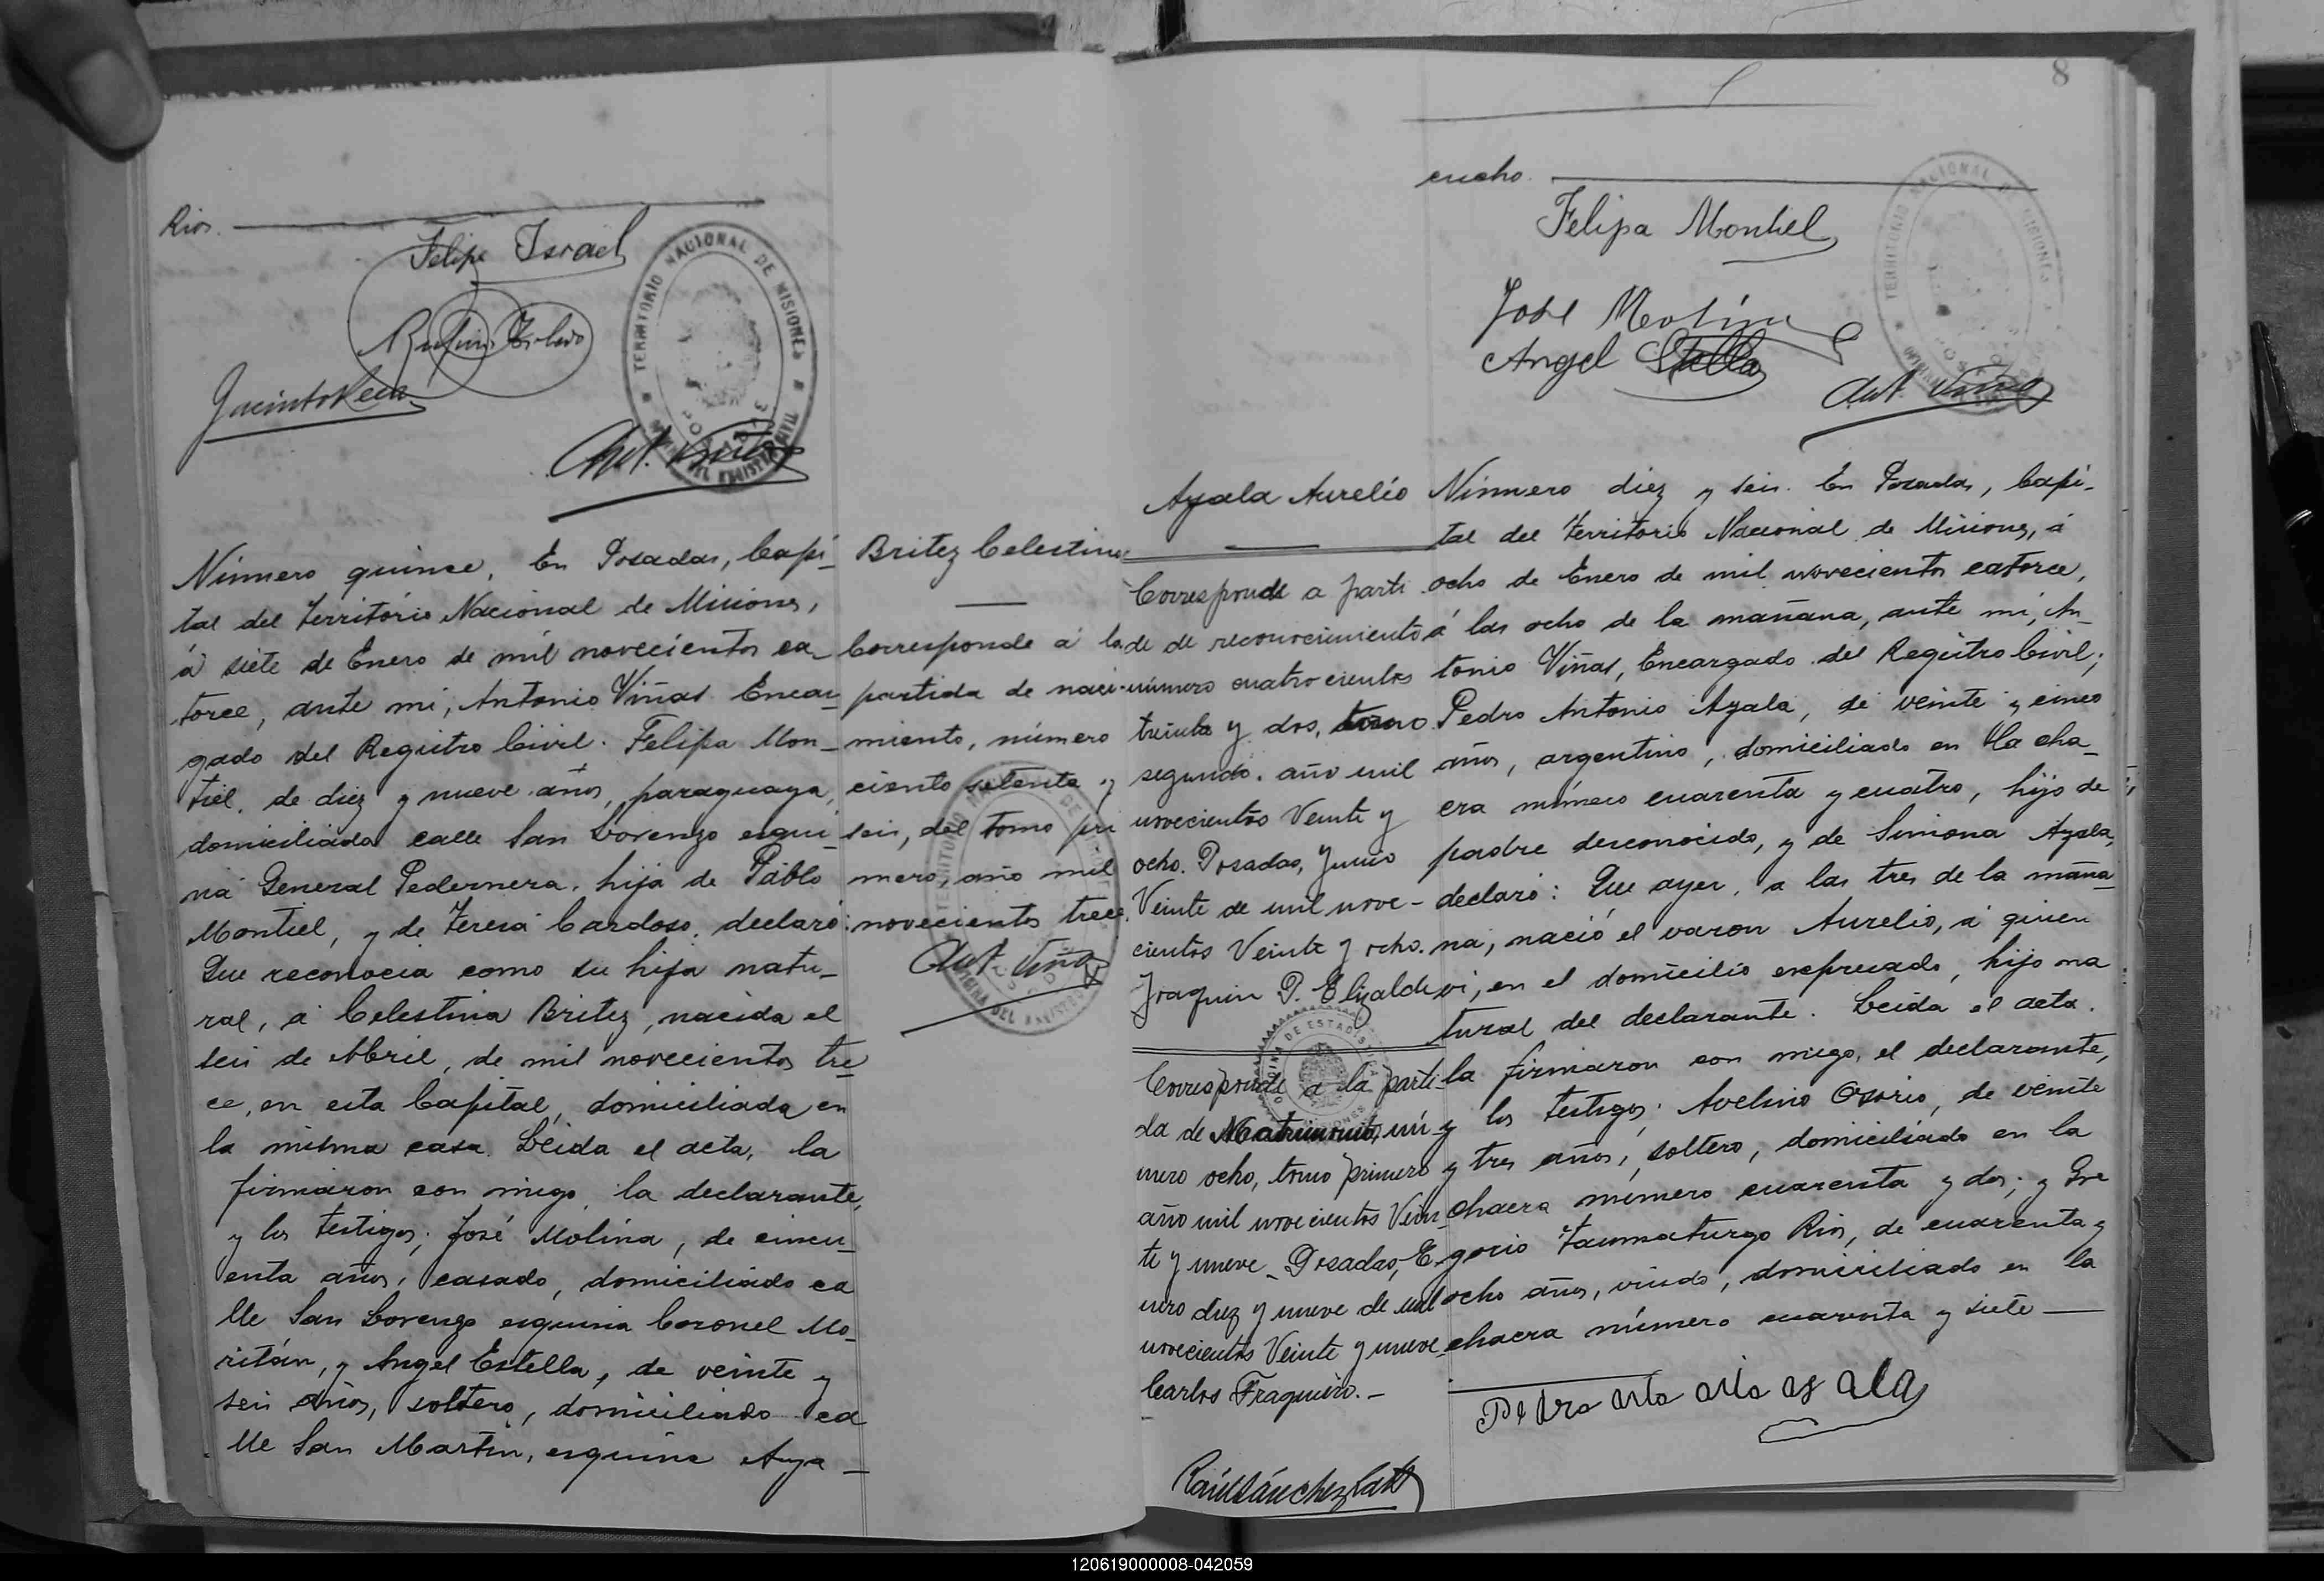 Rios.
Felipe Israel
Rufino Toledo
Jacinto
Ant. Viñas
TERRITORIO NACIONAL DE MISIONES
Número quince. En Posadas, Capi-
tal del Territorio Nacional de Misiones,
á siete de Enero de mil novecientos ca-
torce, ante mi, Antonio Viñas Encar-
gado del Registro Civil: Felipa Mon-
tiel, de diez y nueve años, paraguaya,
domiciliada calle San Lorenzo esqui-
na General Pedernera, hija de Pablo
Montiel, y de Teresa Cardoso, declaró:
Que reconocia como su hija natu-
ral, á Celestina Britez, nacida el
seis de Abril, de mil novecientos tre-
ce, en esta Capital, domiciliada en
la misma casa. Leida el acta, la
firmaron con migo, la declarante,
y los testigos; José Molina, de cincu-
enta años, casado, domiciliado ca
lle San Lorenzo esquina Coronel Mo-
ritán, y Angel Estella, de veinte y
seis años, soltero, domiciliado ca
lle San Martin, esquina Aya-
Britez Celestina
Corresponde á la
partida de naci-
miento, número
ciento setenta y
seis, del tomo pri
mero, año mil
novecientos trece.
Ant. Viñas
8
cucho.
Felipa Montiel
José Molina
Angel Stella
Ant. Viñas
Ayala Aurelio
Corresponde a parti
da de reconocimiento
número cuatrocientos
treinta y dos, tomo
segundo, año mil
novecientos Veinte y
ocho. Posadas, Junio
Veinte de mil nove-
cientos Veinte y ocho.
Joaquin P. Elizalde
Corresponde a la parti-
da de Matrimonio, nú-
mero ocho, tomo primero
año mil novecientos Vein-
te y nueve - Posadas, E-
nero diez y nueve de mil
novecientos Veinte y nueve
Carlos Fraqueiro.-
Raúl Sánchez
Número diez y seis. En Posadas, Capi-
tal del Territorio Nacional de Misiones, á
ocho de Enero de mil novecientos catorce,
á las ocho de la mañana, ante mi, An-
tonio Viñas, Encargado del Registro Civil;
Pedro Antonio Ayala, de veinte y cinco
años, argentino, domiciliado en la cha-
cra número cuarenta y cuatro, hijo de
padre desconocido, y de Simona Ayala,
declaró: Que ayer, a las tres de la maña-
na, nació el varon Aurelio, á quien
vi, en el domicilio expresado, hijo na
tural del declarante. Leida el acta.
la firmaron con migo, el declarante,
y los testigos; Avelino Osorio, de veinte
y tres años, soltero, domiciliado en la
chacra número cuarenta y dos; y Gre
gorio Taumaturgo Rios, de cuarenta y
ocho años, viudo, domiciliado en la
chacra número cuarenta y siete
120619000008-042059